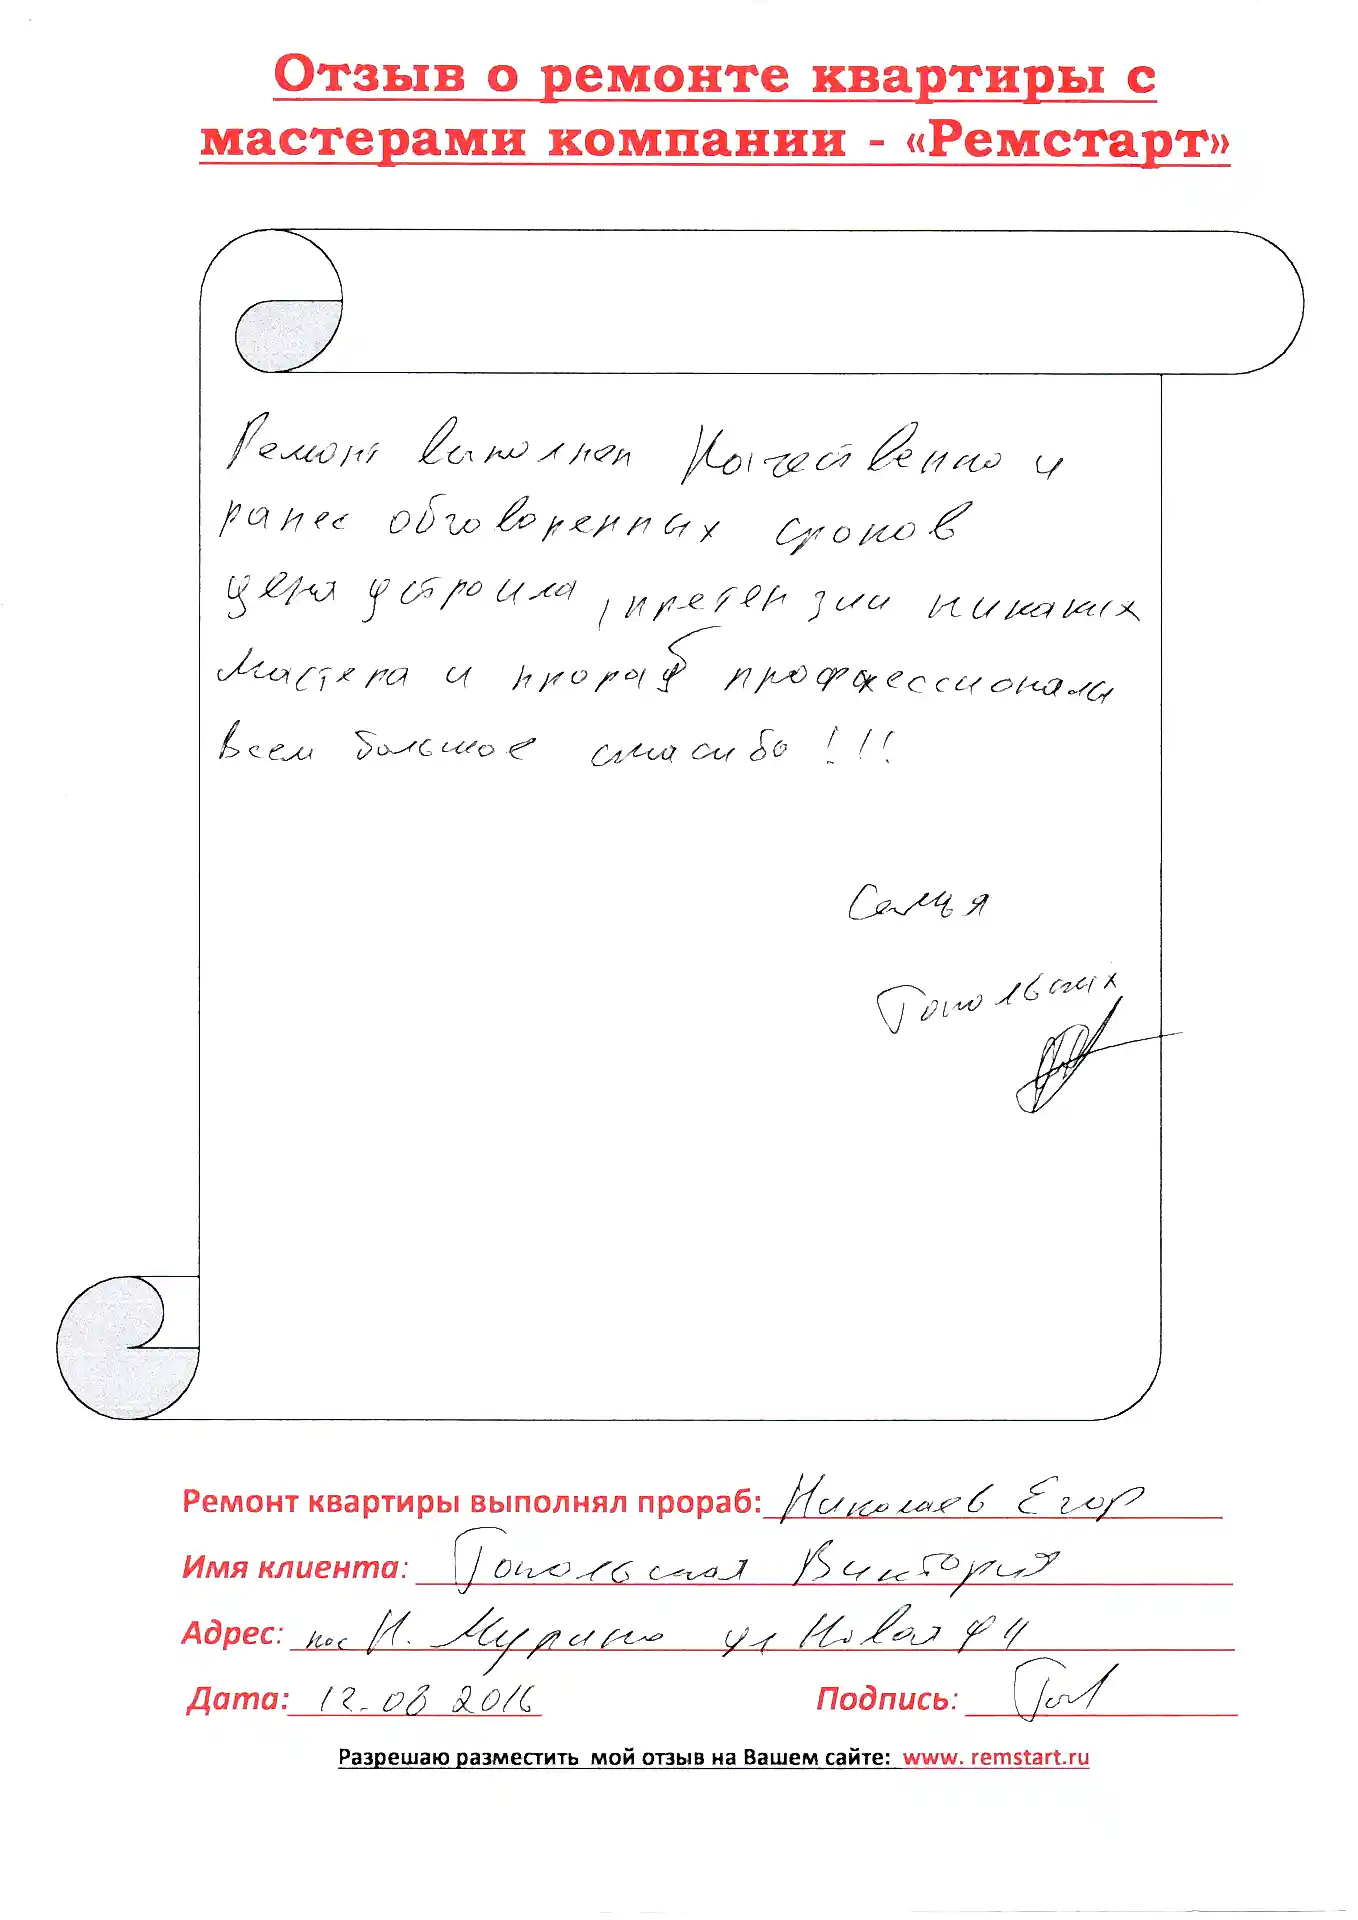 Отзыв о ремонте квартиры с
мастерами компании - «Ремстарт»
Ремонт выполнен Качественно и
ранее обговоренных сроков
цена устроила, претензии никаких
Мастера и прораб профессионалы
Всем большое спасибо!!!
Семья
Топольских
Ремонт квартиры выполнял прораб: Николаев Егор
Имя клиента: Топольская Виктория
Адрес: пос Н. Мурино ул Новая
Дата: 12.08 2016 Подпись:
Разрешаю разместить мой отзыв на Вашем сайте: www. remstart.ru